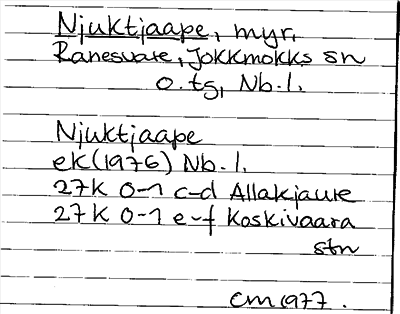 Njuktjaape, myr,
Ranesvare, Jokkmokks sn
o. tg, Nb. l.
Njuktjaape
ek (1976) Nb. l.
27K 0-1 c-d Allakjaure
27K 0-1 e-f Koskivaara
stn
CM 1977.